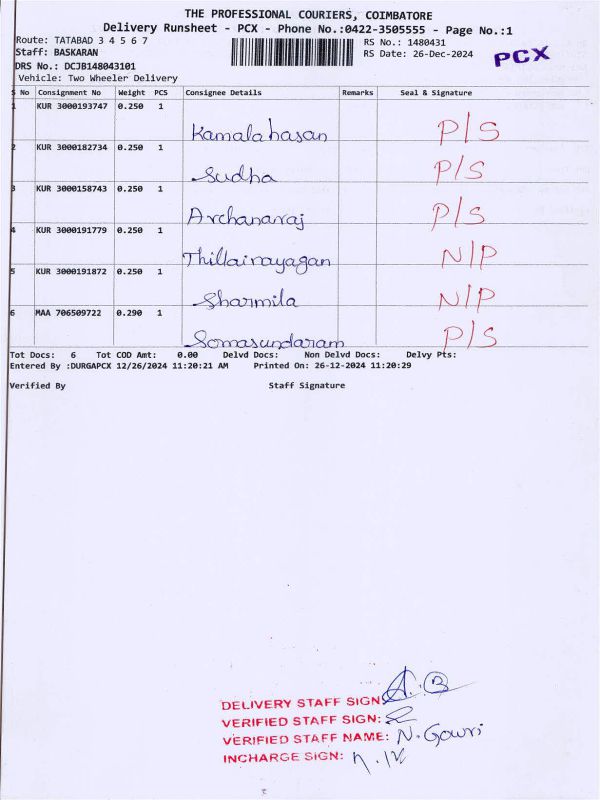 THE PROFESSIONAL COURIERS, COIMBATORE
Delivery Runsheet - PCX - Phone No.:0422-3505555 - Page No.:1
Route: TATABAD 3 4 5 6 7
RS No.: 1480431
Staff: BASKARAN
RS Date: 26-Dec-2024
PCX
DRS No.: DCJB148043101
Vehicle: Two Wheeler Delivery
S No Consignment No Weight PCS Consignee Details Remarks Seal & Signature
1 KUR 3000193747 0.250 1
Kamalahasan P/S
2 KUR 3000182734 0.250 1
Sudha P/S
3 KUR 3000158743 0.250 1
Archanaraj P/S
4 KUR 3000191779 0.250 1
Thillainayagan N/P
5 KUR 3000191872 0.250 1
Sharmila N/P
6 MAA 706509722 0.290 1
Somasundaram P/S
Tot Docs: 6 Tot COD Amt: 0.00 Delvd Docs: Non Delvd Docs: Delvy Pts:
Entered By :DURGAPCX 12/26/2024 11:20:21 AM Printed On: 26-12-2024 11:20:29
Verified By Staff Signature
DELIVERY STAFF SIGN:
VERIFIED STAFF SIGN:
VERIFIED STAFF NAME: N. Gowri
INCHARGE SIGN: